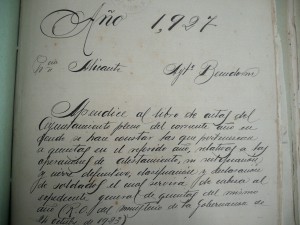 Año 1,927
Pcia Alicante Aytº Benidorm
Apendice al libro de actas del
Ayuntamiento pleno del corriente año en
donde se han constar las que pertenecen
a quintas en el referido año, relativas a las
operaciones de alistamiento, su rectificación
y cierre definitivo, clasificación y declaración
de soldados el cual servirá de cabeza al
expediente general de quintas del mismo
año (R. O. del ministerio de la Gobernacion de